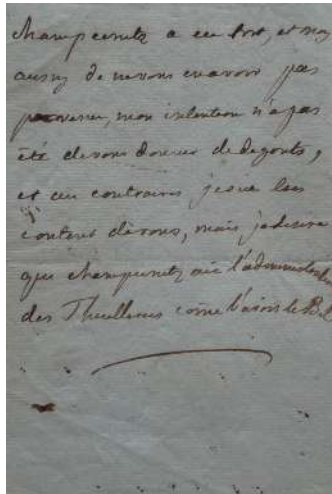 Champcenetz a eu tort, et moy
aussy de ne vous en avoir pas
prevenu, mon intention n'a pas
été de vous donner de degouts,
et au contraire je suis
content de vous, mais je desire
que champcenetz aie l'administration
des Thuilleries come l'avoit le B.